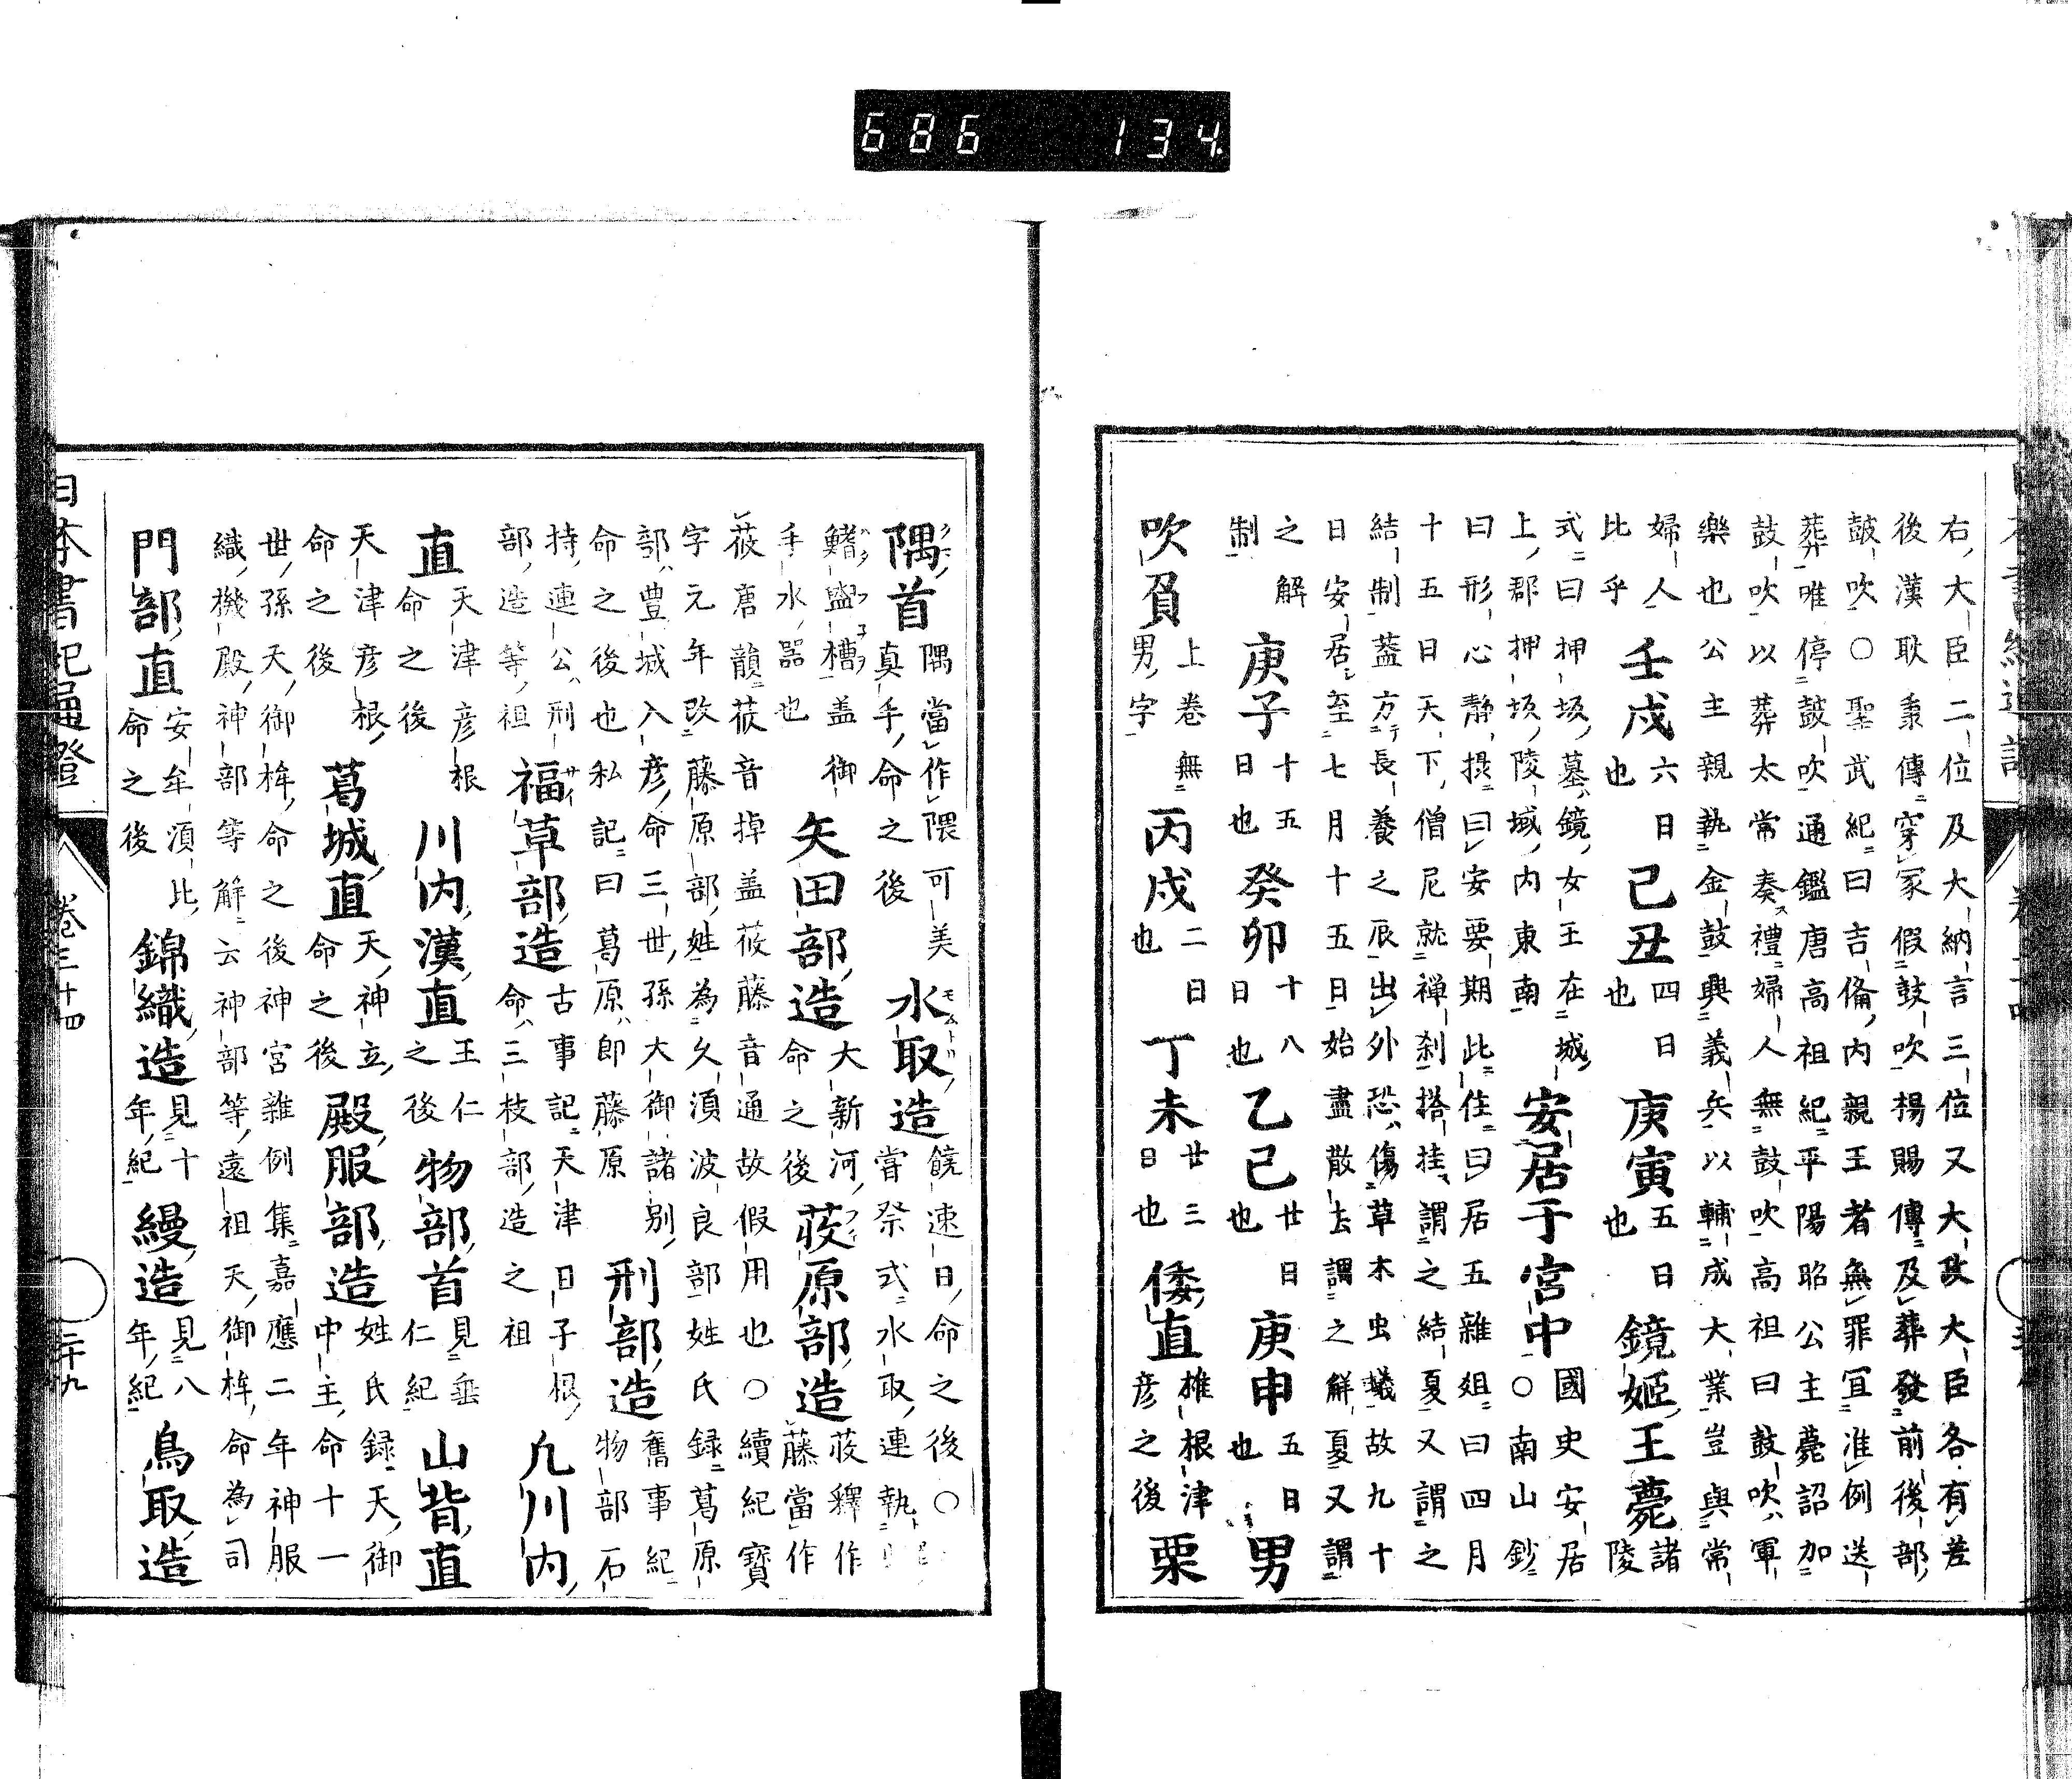 686 134
右大臣二位及大納言三位又大政大臣各有差
後漢耿秉傳穿冢假鼓吹楊賜傳及葬發前後部
鼓吹○聖武紀曰吉備内親王者無罪宜准例送
葬唯停鼓吹通鑑唐高祖紀平陽昭公主薨詔加
鼓吹以葬太常奏禮婦人無鼓吹高祖曰鼓吹軍
樂也公主親執金鼓興義兵以輔成大業豈與常
婦人
比乎
壬戌
六日
也
己丑
四日
也
庚寅
五日
也
鏡姫王薨
諸
陵
式曰押坂墓鏡女王在城
上郡押坂陵域内東南
安居于宮中
國史安居
○南山鈔
曰形心靜摂曰安要期此住曰居五雜俎曰四月
十五日天下僧尼就禅刹搭挂謂之結夏又謂之
結制蓋方長養之辰出外恐傷草木虫蟻故九十
日安居至七月十五日始盡散去謂之解夏又謂
之解
制
庚子
十五
日也
癸卯
十八
日也
乙巳
廿日
也
庚申
五日
也
男
吹負
上巻無
男字
丙戌
二日
也
丁未
廿三
日也
倭直
椎根津
彦之後
栗
隅首
隅當作隈可美
真手命之後
水取造
饒速日命之後○
嘗祭式水取連執
鰭盥槽盖御
手水器也
矢田部造
大新河
命之後
莈原部造
莈釋作
藤當作
莜唐韻莜音掉盖莜藤音通故假用也○續紀寶
字元年改藤原部姓為久須波良部姓氏録葛原
部豊城入彦命三世孫大御諸別
命之後也私記曰葛原即藤原
刑部造
舊事紀
物部石
持連公刑
部造等祖
福草部造
古事記天津日子根
命三枝部造之祖
凡川内
直
天津彦根
命之後
川内漢直
王仁
之後
物部首
見垂
仁紀
山背直
天津彦根
命之後
葛城直
天神立
命之後
殿服部造
姓氏録天御
中主命十一
世孫天御桙命之後神宮雜例集嘉應二年神服
織機殿神部等解云神部等遠祖天御桙命為司
門部直
安牟須比
命之後
錦織造
見十
年紀
縵造
見八
年紀
鳥取造
日本書紀通證
卷三十四
二十九